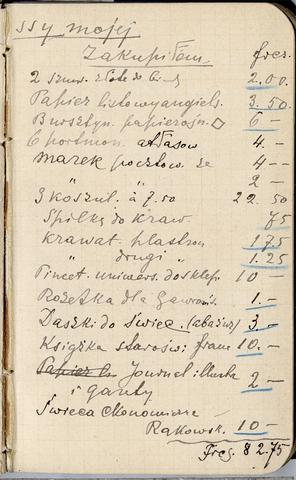 ssy mojej
Zakupiłem frcs.
2 sznur. złote do 2.00.
Papier listowy angiels. 3.50
Bursztyn. papierośn. 6 –
6 portmon. atłasow 4. –
Marek pocztow. za 4 --
" " 2 –
3 koszul. à 7.50 22.50
Spilką do kraw. 75
Krawat. plastron 1.75
" drugi " 1.25
Pincet. univers. do sklep. 10 –
Rozetka dla 1. –
Daszki do świec. (abażur) 3 –
Książka starośw: franc 10. –
Papier Journal illustr 2 –
i ganty
Świeca ekonomiczna
Rakowsk. 10 –
Frcs. 82.75